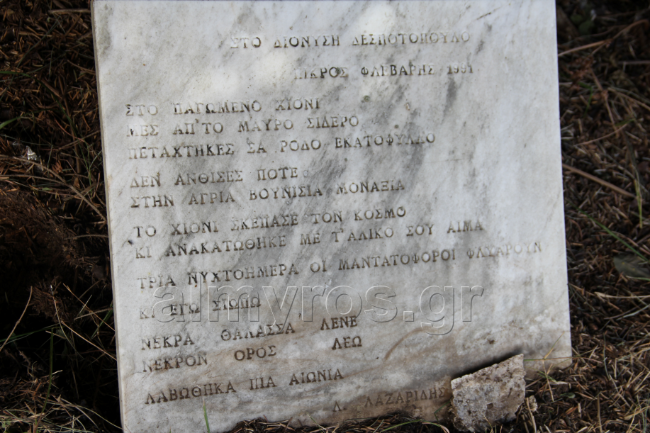 ΣΤΟ ΔΙΟΝΥΣΗ ΔΕΣΠΟΤΟΠΟΥΛΟ
ΠΙΚΡΟΣ ΦΛΕΒΑΡΗΣ 1991
ΣΤΟ ΠΑΓΩΜΕΝΟ ΧΙΟΝΙ
ΜΕΣ ΑΠ'ΤΟ ΜΑΥΡΟ ΣΙΔΕΡΟ
ΠΕΤΑΧΤΗΚΕΣ ΣΑ ΡΟΔΟ ΕΚΑΤΟΦΥΛΛΟ
ΔΕΝ ΑΝΘΙΣΕΣ ΠΟΤΕ
ΣΤΗΝ ΑΓΡΙΑ ΒΟΥΝΙΣΙΑ ΜΟΝΑΞΙΑ
ΤΟ ΧΙΟΝΙ ΣΚΕΠΑΣΕ ΤΟΝ ΚΟΣΜΟ
ΚΙ ΑΝΑΚΑΤΩΘΗΚΕ ΜΕ Τ'ΑΛΙΚΟ ΣΟΥ ΑΙΜΑ
ΤΡΙΑ ΝΥΧΤΟΗΜΕΡΑ ΟΙ ΜΑΝΤΑΤΟΦΟΡΟΙ ΦΛΥΑΡΟΥΝ
ΚΙ ΕΓΩ ΣΙΩΠΩ
almyros.gr
ΝΕΚΡΑ ΘΑΛΑΣΣΑ ΛΕΝΕ
ΝΕΚΡΟΝ ΟΡΟΣ ΛΕΩ
ΛΑΒΩΘΗΚΑ ΠΙΑ ΑΙΩΝΙΑ
ΛΑΖΑΡΙΔΗΣ